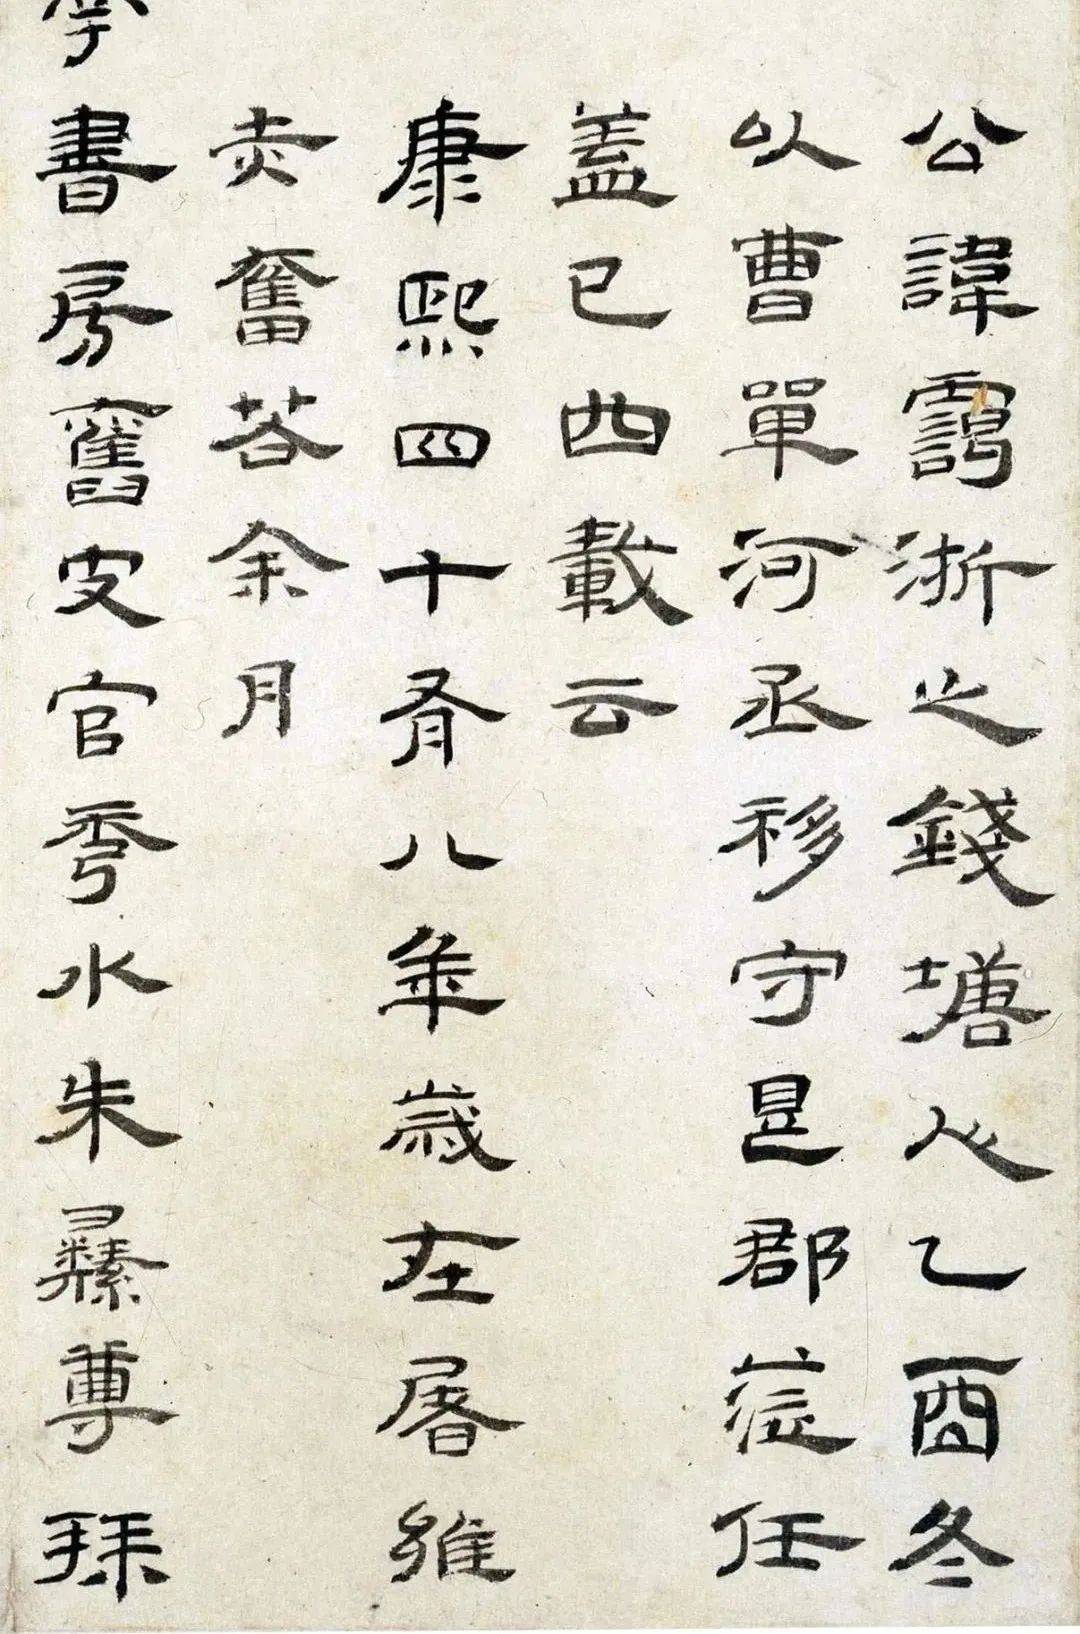 公諱浙之錢塘人乙酉冬
以曹單河丞移守是郡蒞任
蓋已四載云
康熙四十有八年歲在屠維
赤奮若余月
書房舊史官秀水朱彝尊拜